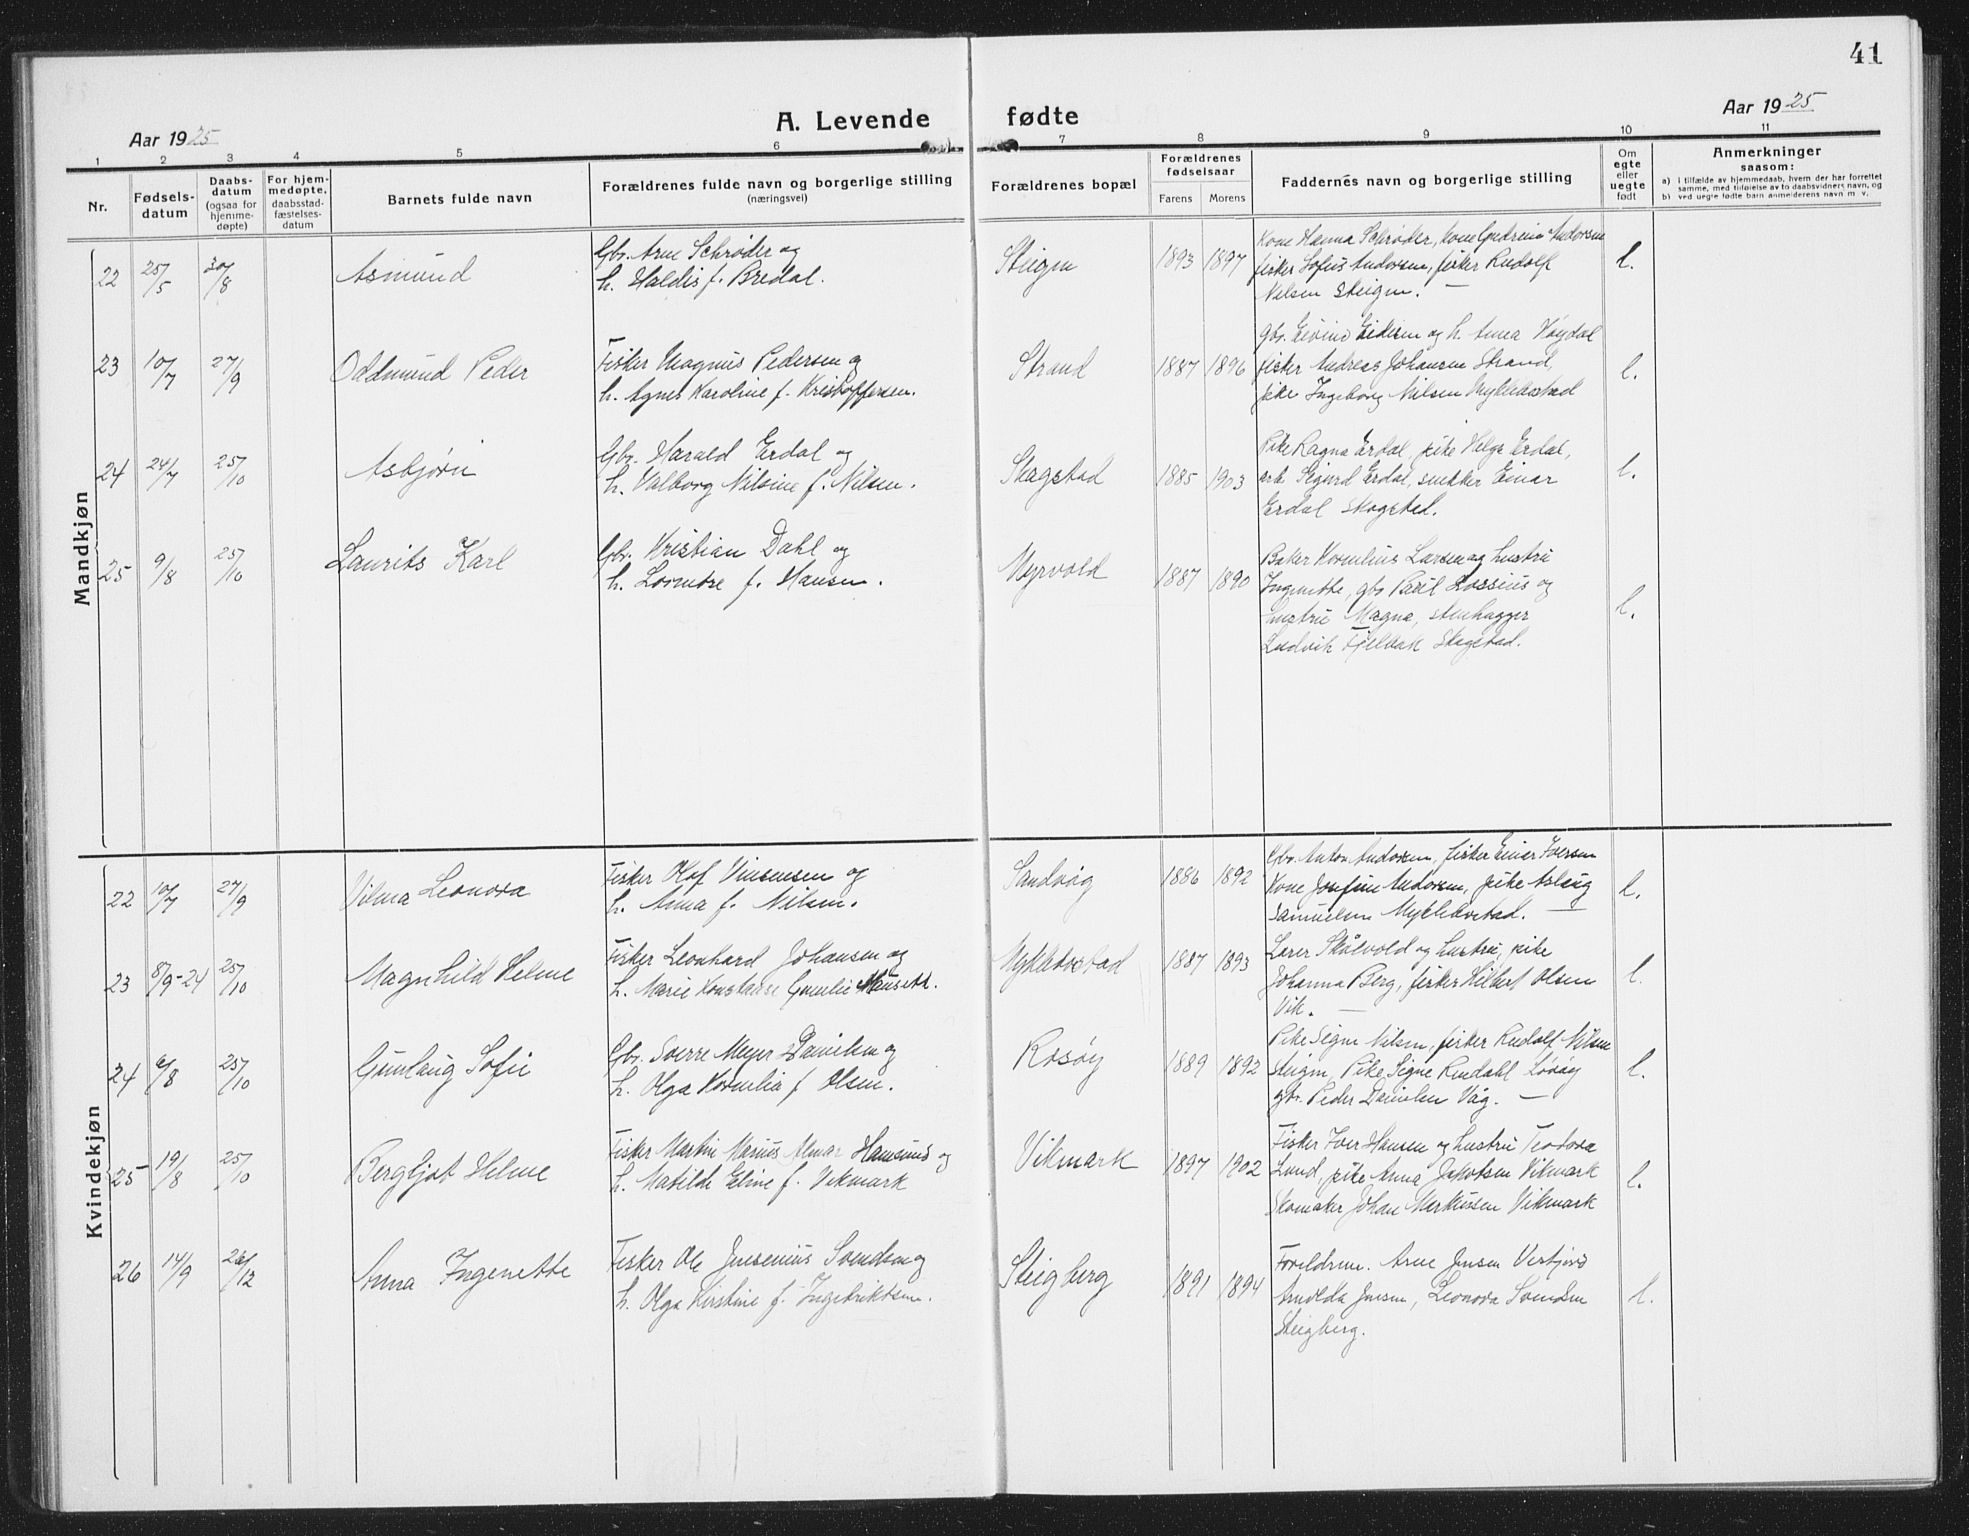 41
A. Levende fødte
Aar 1925
Aar 1925
1 2 3 4 5 6 7 8 9 10 11
Nr.
Fødsels-
datum
Daabs-
datum
(ogsaa for
hjemme-
døpte)
For hjem-
medøpte,
daabsstad-
fæstelses-
datum
Barnets fulde navn
Forældrenes fulde navn og borgerlige stilling
(næringsvei)
Forældrenes bopæl
Forældrenes
fødselsaar
Farens Morens
Faddernes navn og borgerlige stilling
Om
egte
eller
uegte
født
Anmerkninger
saasom:
a) i tilfælde av hjemmedaab, hvem der har forrettet
samme, med tilføielse av to daabsvidners navn, og
b) ved uegte fødte barn anmelderens navn m. v.
Mandkjøn
22 25/5 30/8 Asmund
Gbr. Arne Schrøder og
h. Haldis f. Bredal.
Steigen 1893 1897
Kone Hanna Schrøder, kone Andorsen
fisker Sofus Andorsen, fisker Rudolf
Nilsen Steigen. —
l.
23 10/7 27/9 Oddmund Peder
Fisker Magnus Pedersen og
h. Agnes Karoline f. Kristoffersen.
Strand 1887 1896
gbr. Eivind Eidisen og h. Anna Høydal
fisker Andreas Johansen Strand,
pike Ingeborg Nilsen Myklebostad
l.
24 24/7 25/10 Asbjørn
Gbr. Harald Erdal og
h. Valborg Nilsine f. Nilsen.
Skagstad 1885 1903
Pike Ragna Erdal, pike Helga Erdal,
arb. Sigurd Erdal, snekker Einar
Erdal Skogstad.
l.
25 9/8 25/10 Laurits Karl
Gbr. Kristian Dahl og
h. Lorentse f. Hansen.
Myrvold 1887 1890
Baker Kornelius Larsen og hustru
Ingenette, gbr Paul Lossius og
hustru Magna, stenhugger
Ludvik Fjelbak Skagstad.
l.
Kvindekjøn
22 10/7 27/9 Vilma Leonora
Fisker Olaf Vinsensen og
h. Anna f. Nilsen.
Sandvåg 1886 1892
Gbr. Anton Andorsen, fisker Einar Iversen
Kone Josefine Andorsen, pike Aslaug
Samuelsen Myklebostad. —
l.
23 8/9-24 25/10 Magnhild Helene
Fisker Leonhard Johansen og
h. Marie Konstanse Hansdt.
Myklebostad 1887 1893
Lærer Skålvold og hustru, pike
Johanna Berg, fisker Hilbert Olsen
Vik. —
l.
24 6/8 25/10 Gunlaug Sofie
Gbr. Sverre Meyer Danielsen og
h. Olga Kornelia f. Olsen.
Røsøy 1889 1892
Pike Signe Nilsen, fisker Rudolf Nilsen
Steigen, Pike Signe Rindahl Løvøy
gbr. Peder Danielsen Våg. —
l.
25 19/8 25/10 Bergljot Helene
Fisker Martin Marius Almar Hansens og
h. Matilde Eline f. Vikmark
Vikmark 1897 1902
Fisker Iver Hansen og hustru Teodora
Lund, pike Anna Jakobsen Vikmark
Skomaker Johan Markussen Vikmark
l.
26 14/9 26/12 Anna Ingenette
Fisker Ole Jensenius Svendsen og
h. Olga Kirstine f. Ingebriktsen.
Steigberg 1891 1894
Foreldrene. Arne Jensen Vestfjord
Arnolda Jensen, Leonora Svendsen
Steigberg.
l.